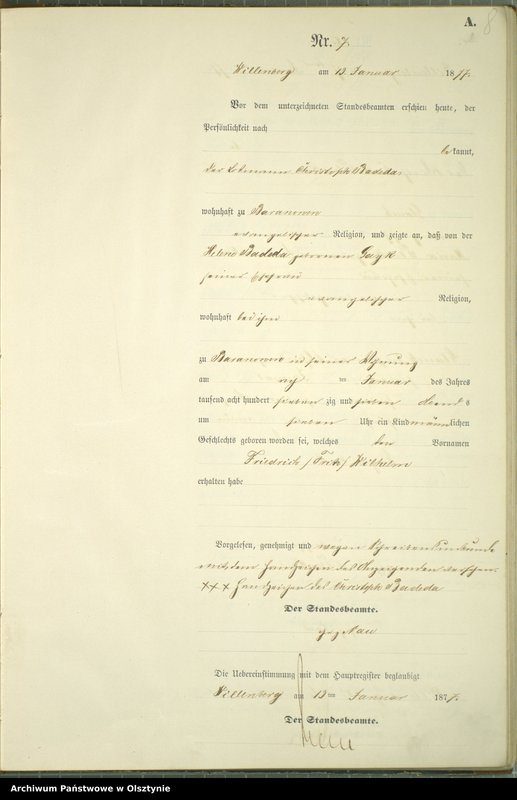 A.
8
Nr. 7.
Willenberg am 13 Januar 1877.
Vor dem unterzeichneten Standesbeamten erschien heute, der
Persönlichkeit nach
bekannt,
der Lohmann Christoph Badeda
wohnhaft zu Baranowen
evangelischer Religion, und zeigte an, daß von der
Helene Badeda geborenen
seiner Ehefrau
evangelischer Religion,
wohnhaft bei ihm
zu Baranowen in seiner Wohnung
am ten Januar des Jahres
tausend acht hundert sieben zig und sieben Abends
um sieben Uhr ein Kind männlichen
Geschlechts geboren worden sei, welches den Vornamen
Friedrich /Fritz/ Wilhelm
erhalten habe
Vorgelesen, genehmigt und wegen Schreibensunkunde
mit dem Handzeichen des Anzeigenden versehen.
+++ Handzeichen des Christoph Badeda
Der Standesbeamte.
gez Nau
Die Uebereinstimmung mit dem Hauptregister beglaubigt
Willenberg am 13ten Januar 1877.
Der Standesbeamte.
Nau
Archiwum Państwowe w Olsztynie